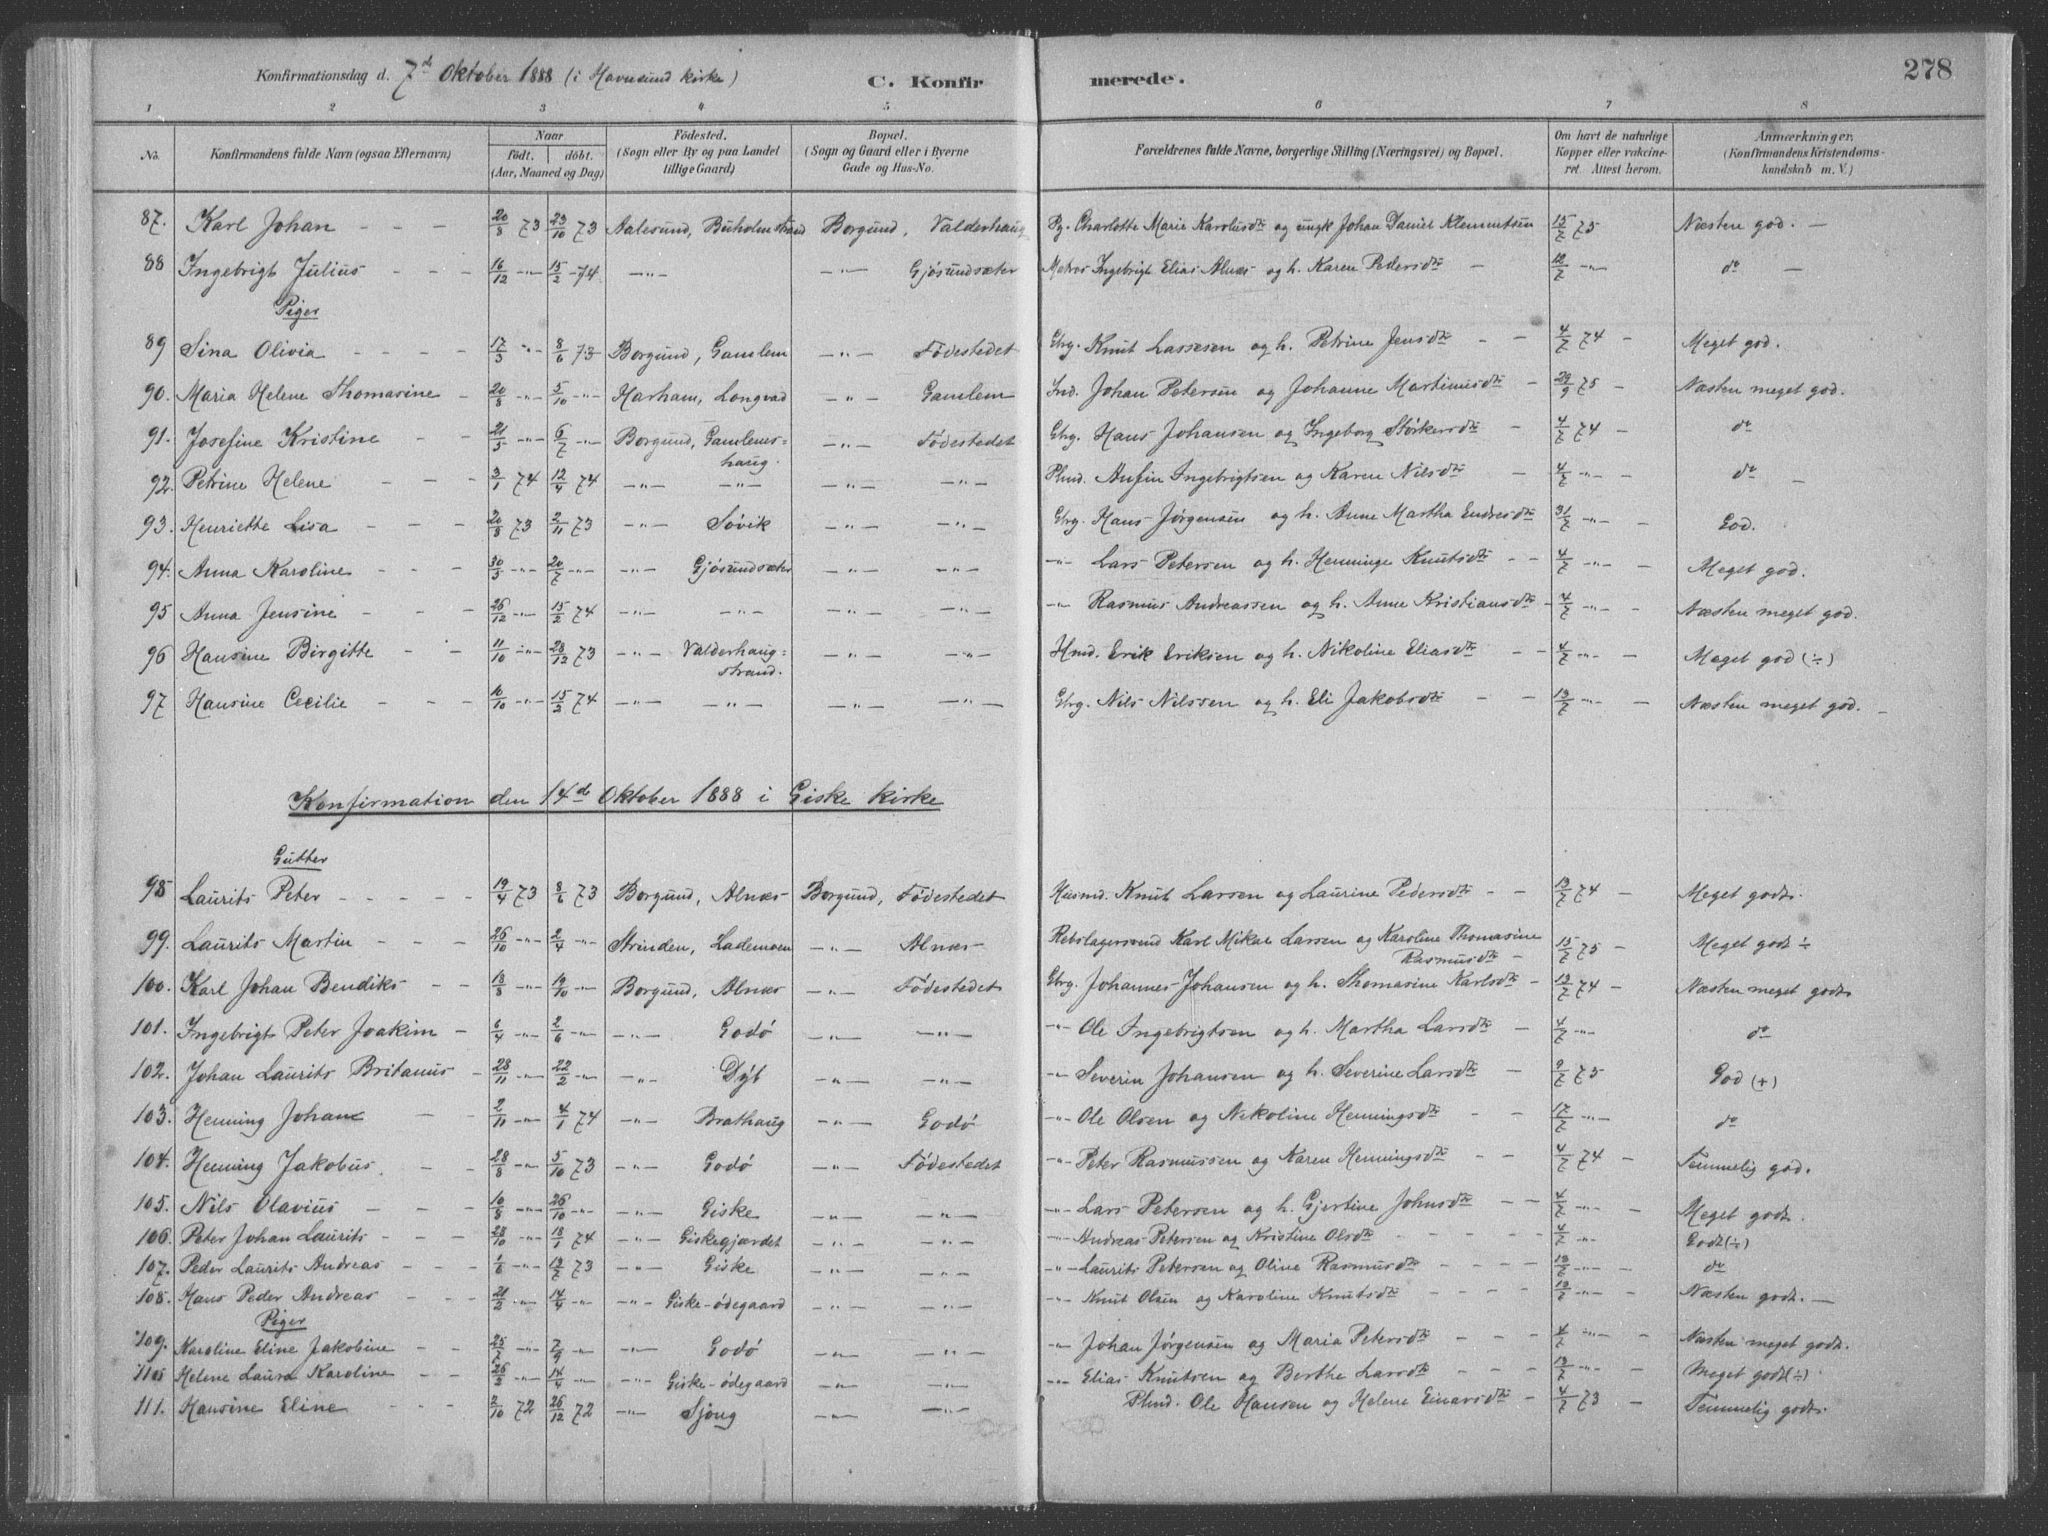 Konfirmationsdag d. 7d Oktober 1888 (i Havnsund kirke) C. Konfir merede. 278
1 2 3 4 5 6 7 8
No. Konfirmandens fulde Navn (ogsaa Efternavn) Naar födt. döbt. (Aar, Maaned og Dag) Födested. (Sogn eller By og paa Landet tillige Gaard) Bopæl. (Sogn og Gaard eller i Byerne Gade og Hus-No. Forældrenes fulde Navne, borgerlige Stilling (Næringsvei) og Bopæl. Om havt de naturlige Kopper eller vakcineret. Attest herom. Anmærkninger. (Konfirmandens Kristendomskundskab m. V.)
87. Karl Johan 20/8 73 23/10 73 Aalesund, Buholmstrand Borgund, Valderhaug Pg. Charlotte Marie Karolusdtr og ungk Johan Daniel Klementsen 15/7 75 Næsten god. —
88 Ingebrigt Julius 16/12 -"- 15/2 -74 -"- -"- Gjösundsæter Matros Ingebrigt Elias Alnæs og h. Karen Pedersdtr 12/7 -"- do —
Piger
89 Sina Olivia 17/3 -"- 8/6 73 Borgund, Gamlem -"- Födestedet Gbrg. Knut Lassesen og h. Petrine Jensdtr 4/7 74 Meget god.
90. Maria Helene Thomasine 20/8 -"- 5/10 -"- Harham, Longvad -"- Gamlem Ind. Johan Petersen og Johanne Martinusdtr 29/9 75 Næsten meget god.
91. Josefine Kristine 21/5 -"- 6/7 -"- Borgund, Gamlemshaug. -"- Födestedet Gbrg. Hans Johansen og Ingeborg Störkersdtr 4/7 74 do
92. Petrine Helene 3/1 74 12/4 74 -"- -"- -"- -"- Plmd. Anfin Ingebrigtsen og Karen Nilsdtr 4/7 -"- do
93. Henriette Lisa 20/8 73 2/11 73 -"- Sövik -"- -"- Gbrg. Hans Jørgensen og h. Anne Martha Endresdtr 31/7 -"- God.
94. Anna Karoline 30/5 -"- 20/7 -"- -"- Gjösundsæter -"- -"- -"- Lars Petersen og h. Henninge Knutsdtr 4/7 -"- Meget god.
95 Anna Jensine 26/12 -"- 15/2 74 -"- -"- -"- -"- -"- Rasmus Andreassen og h. Anne Kristiansdtr 4/7 -"- Næsten meget god.
96 Hansine Birgitte 11/10 -"- 28/12 73 -"- Valderhaugstrand. -"- -"- Hmd. Erik Eriksen og h. Nikoline Eliasdtr 4/7 -"- Meget god (÷)
97 Hansine Cecilie 10/10 -"- 15/2 74 -"- -"- -"- -"- Gbrg. Nils Nilssen og h. Eli Jakobsdtr 13/7 -"- Næsten meget god. —
Konfirmation den 14d Oktober 1888 i Giske kirke
Gutter
98 Laurits Peter 19/4 73 8/6 73 Borgund, Alnæs Borgund, Födestedet Husmd. Knut Larsen og Laurine Pedersdtr 13/7 74 Meget godt.
99. Laurits Martin 26/10 -"- 2/4 -"- Strinden, Lademoen -"- Alnæs Rebslagersvend Karl Mikal Larsen og Karoline Thomasine Rasmusdtr 15/7 75 Meget godt ÷
100. Karl Johan Bendiks 18/8 -"- 19/10 -"- Borgund, Alnæs -"- Födestedet Gbrg. Johannes Johansen og h. Thomasine Karlsdtr 13/7 74 Næsten meget godt
101. Ingebrigt Peter Joakim 6/4 -"- 2/6 -"- -"- Godö -"- -"- -"- Ole Ingebrigtsen og h. Martha Larsdtr 4/7 -"- do
102. Johan Laurits Britanus 28/11 -"- 22/2 -"- -"- Dyb -"- -"- -"- Severin Johansen og h. Severine Larsdtr 9/7 75 God (+)
103. Henning Johan 2/11 -"- 4/1 74 -"- Brathaug -"- Godö -"- Ole Olsen og Nikoline Henningsdtr 17/7 -"- do
104. Henning Jakobus. 28/8 -"- 5/10 73 -"- Godö -"- Födestedet -"- Peter Rasmussen og Karen Henningsdtr 4/7 74 Temmelig god.
105. Nils Olavius 10/8 -"- 26/10 -"- -"- Giske -"- -"- -"- Lars Petersen og h. Gjertine Johnsdtr 4/7 -"- Meget godt.
106. Peter Johan Laurits 28/10 -"- 18/1 74 -"- Giskegjærdet -"- -"- -"- Andreas Petersen og Kristine Olsdtr 4/7 -"- Godt (÷)
107. Peder Laurits Andreas 1/6 -"- 13/7 73 -"- Giske -"- -"- -"- Laurits Petersen og Oline Rasmusdtr 13/7 -"- do
108. Hans Peder Andreas 21/2 -"- 14/4 -"- -"- Giske-ödegaard -"- -"- -"- Knut Olsen og Karoline Knutsdtr 13/7 -"- Næsten godt. —
Piger
109. Karoline Eline Jakobine 25/7 -"- 7/9 -"- -"- Godö -"- -"- -"- Johan Jørgensen og Maria Petersdtr 4/7 -"- Næsten meget godt.
110 Helene Laura Karoline 26/2 -"- 14/4 -"- -"- Giske-ödegaard -"- -"- -"- Elias Knutsen og Berthe Larsdtr 13/7 -"- Meget godt (÷)
111. Hansine Eline 3/10 72 26/12 72 -"- Sjong -"- -"- Plmd. Ole Hansen og Helene Einarsdtr 4/7 73 Temmelig godt.